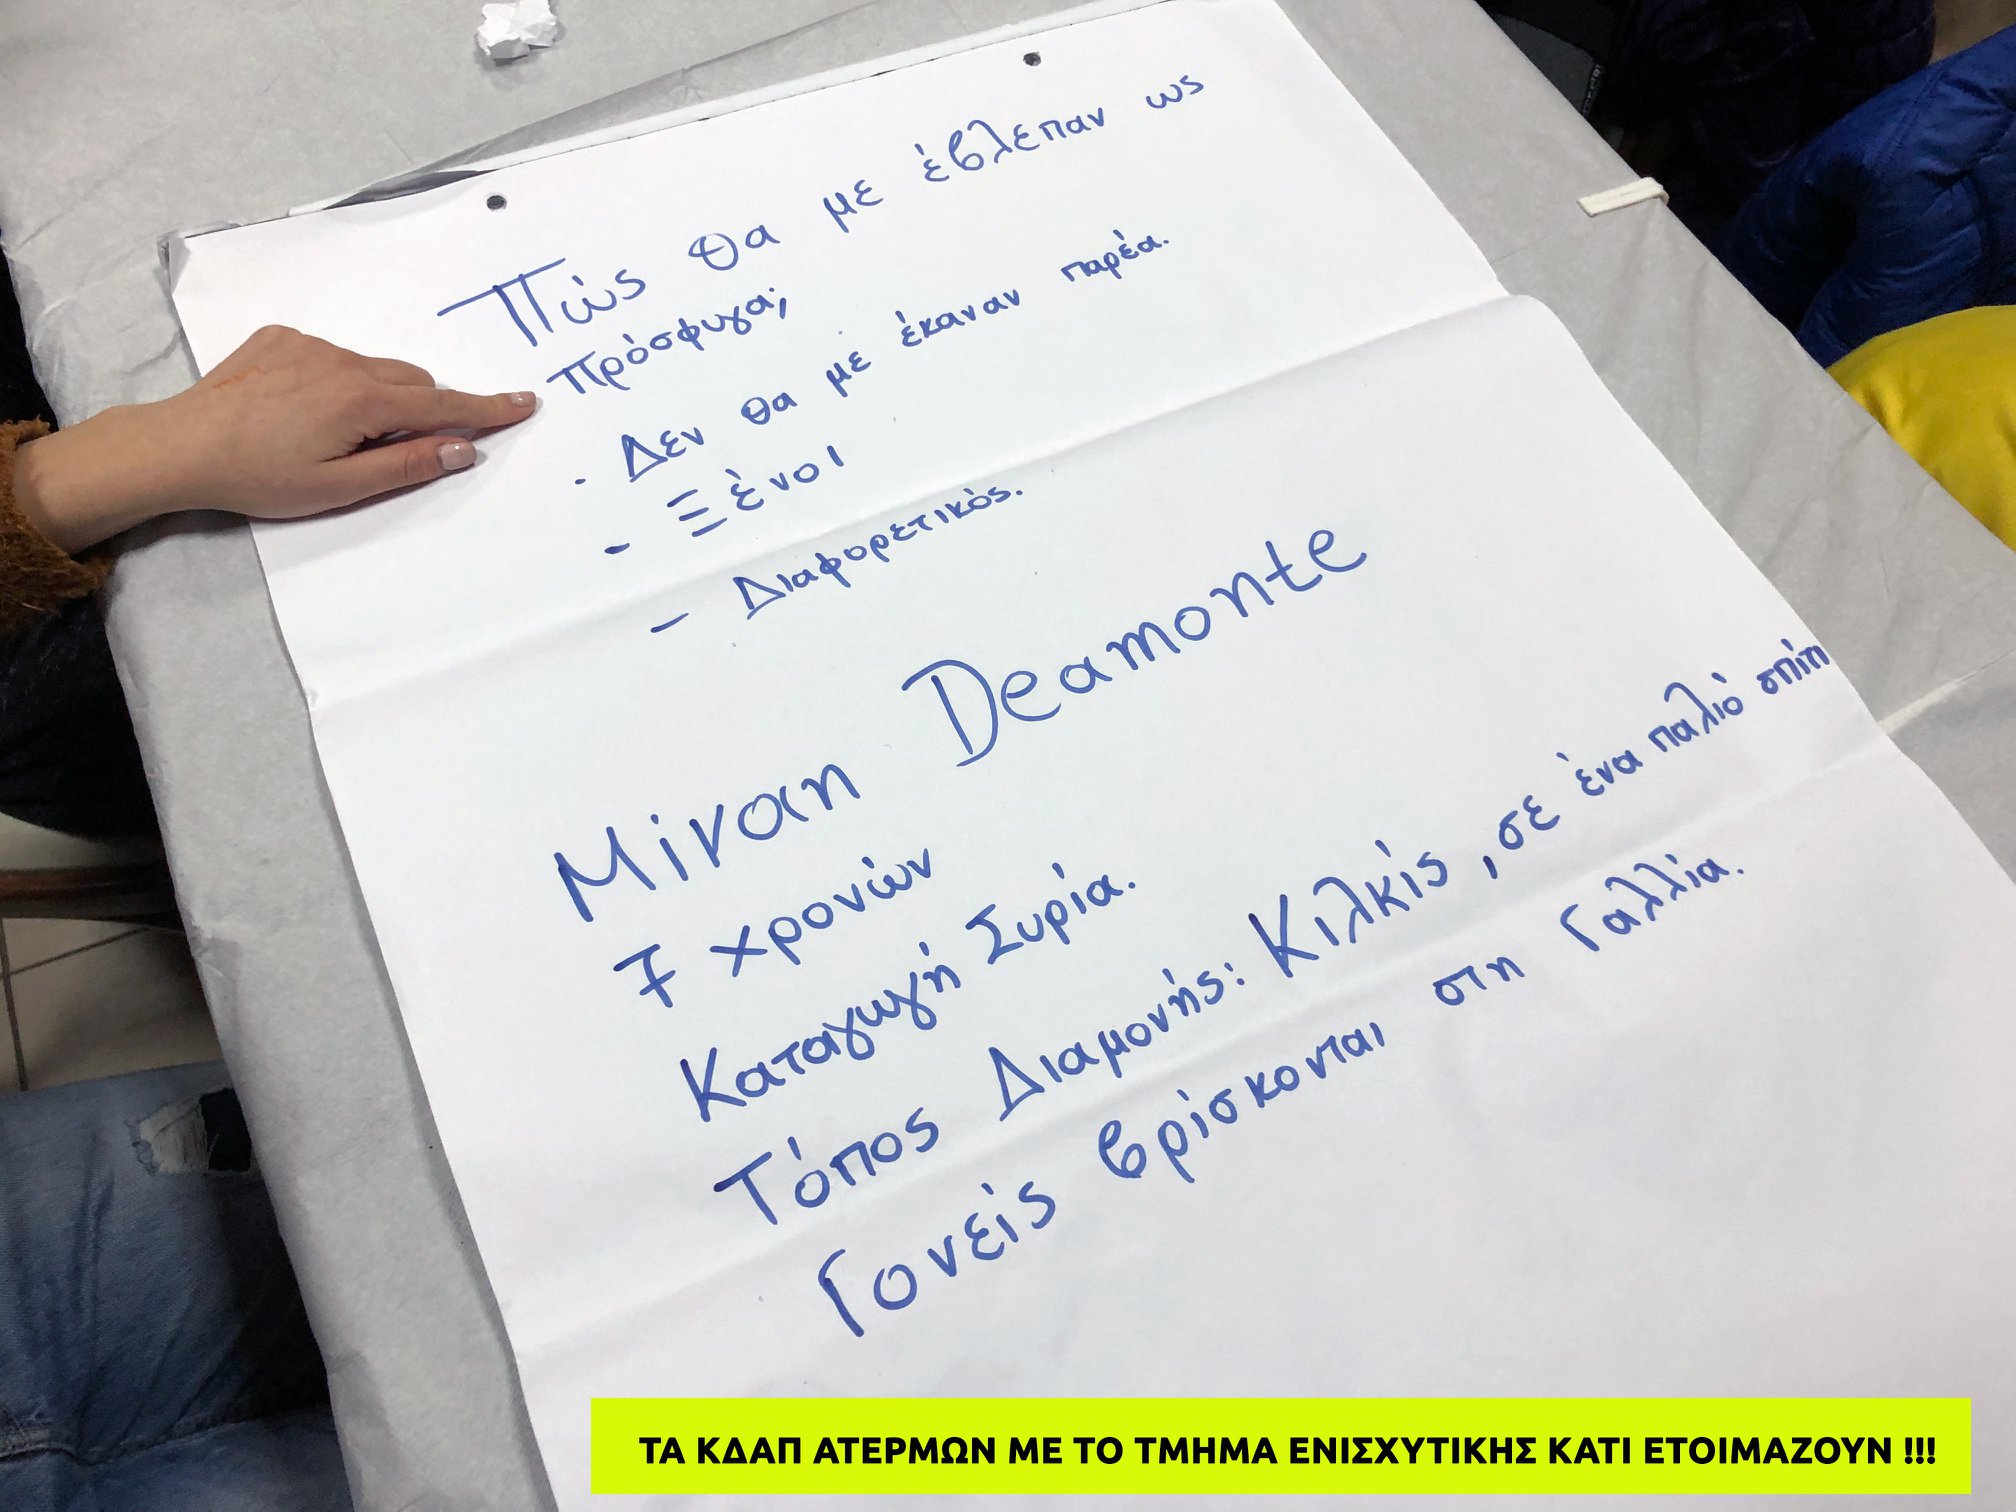 Πώς θα με έβλεπαν ως
πρόσφυγα;
· Δεν θα με έκαναν παρέα.
- Ξένοι
- Διαφορετικός.
Μίναη Deamonte
7 χρονών
Καταγωγή Συρία.
Τόπος Διαμονής: Κιλκίς, σε ένα παλιό σπίτι
Γονείς βρίσκονται στη Γαλλία.
ΤΑ ΚΔΑΠ ΑΤΕΡΜΩΝ ΜΕ ΤΟ ΤΜΗΜΑ ΕΝΙΣΧΥΤΙΚΗΣ ΚΑΤΙ ΕΤΟΙΜΑΖΟΥΝ !!!